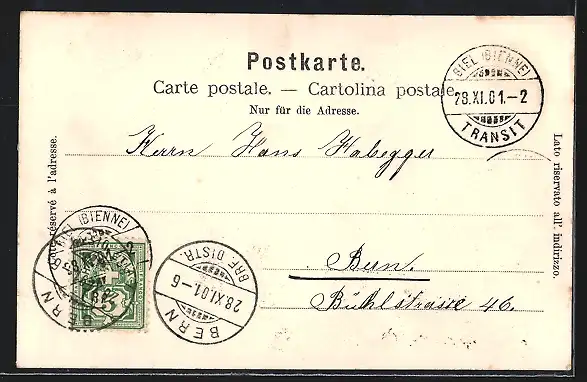 Postkarte.
Carte postale. — Cartolina postale.
Nur für die Adresse.
BIEL (BIENNE)
28.XI.01.–2
TRANSIT
Herrn Hans Habegger
Côté réservé à l'adresse.
Lato riservato all' indirizzo.
Bern.
Bühlstrasse 46.
BIEL (BIENNE)
BERN
BRF. DISTR.
28.XI.01.–6
BERN